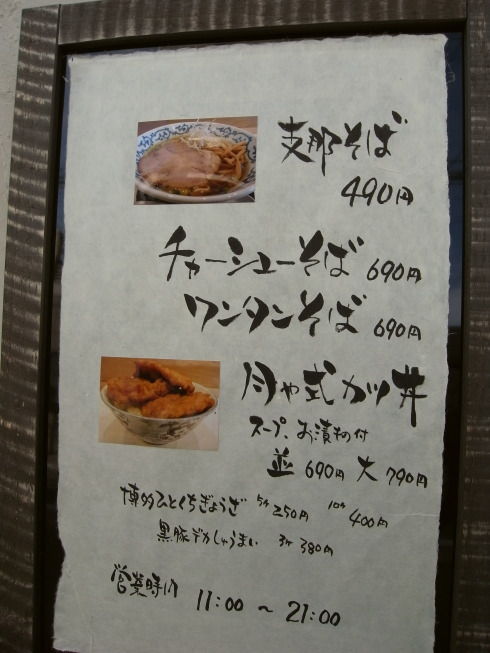 支那そば
490円
チャーシューそば 690円
ワンタンそば 690円
月や式カツ丼
スープ、お漬物付
並 690円 大 790円
博多ひとくちぎょうざ 5ケ 250円 10ケ 400円
黒豚デカしゅうまい 3ケ 380円
営業時間 11:00 ~ 21:00